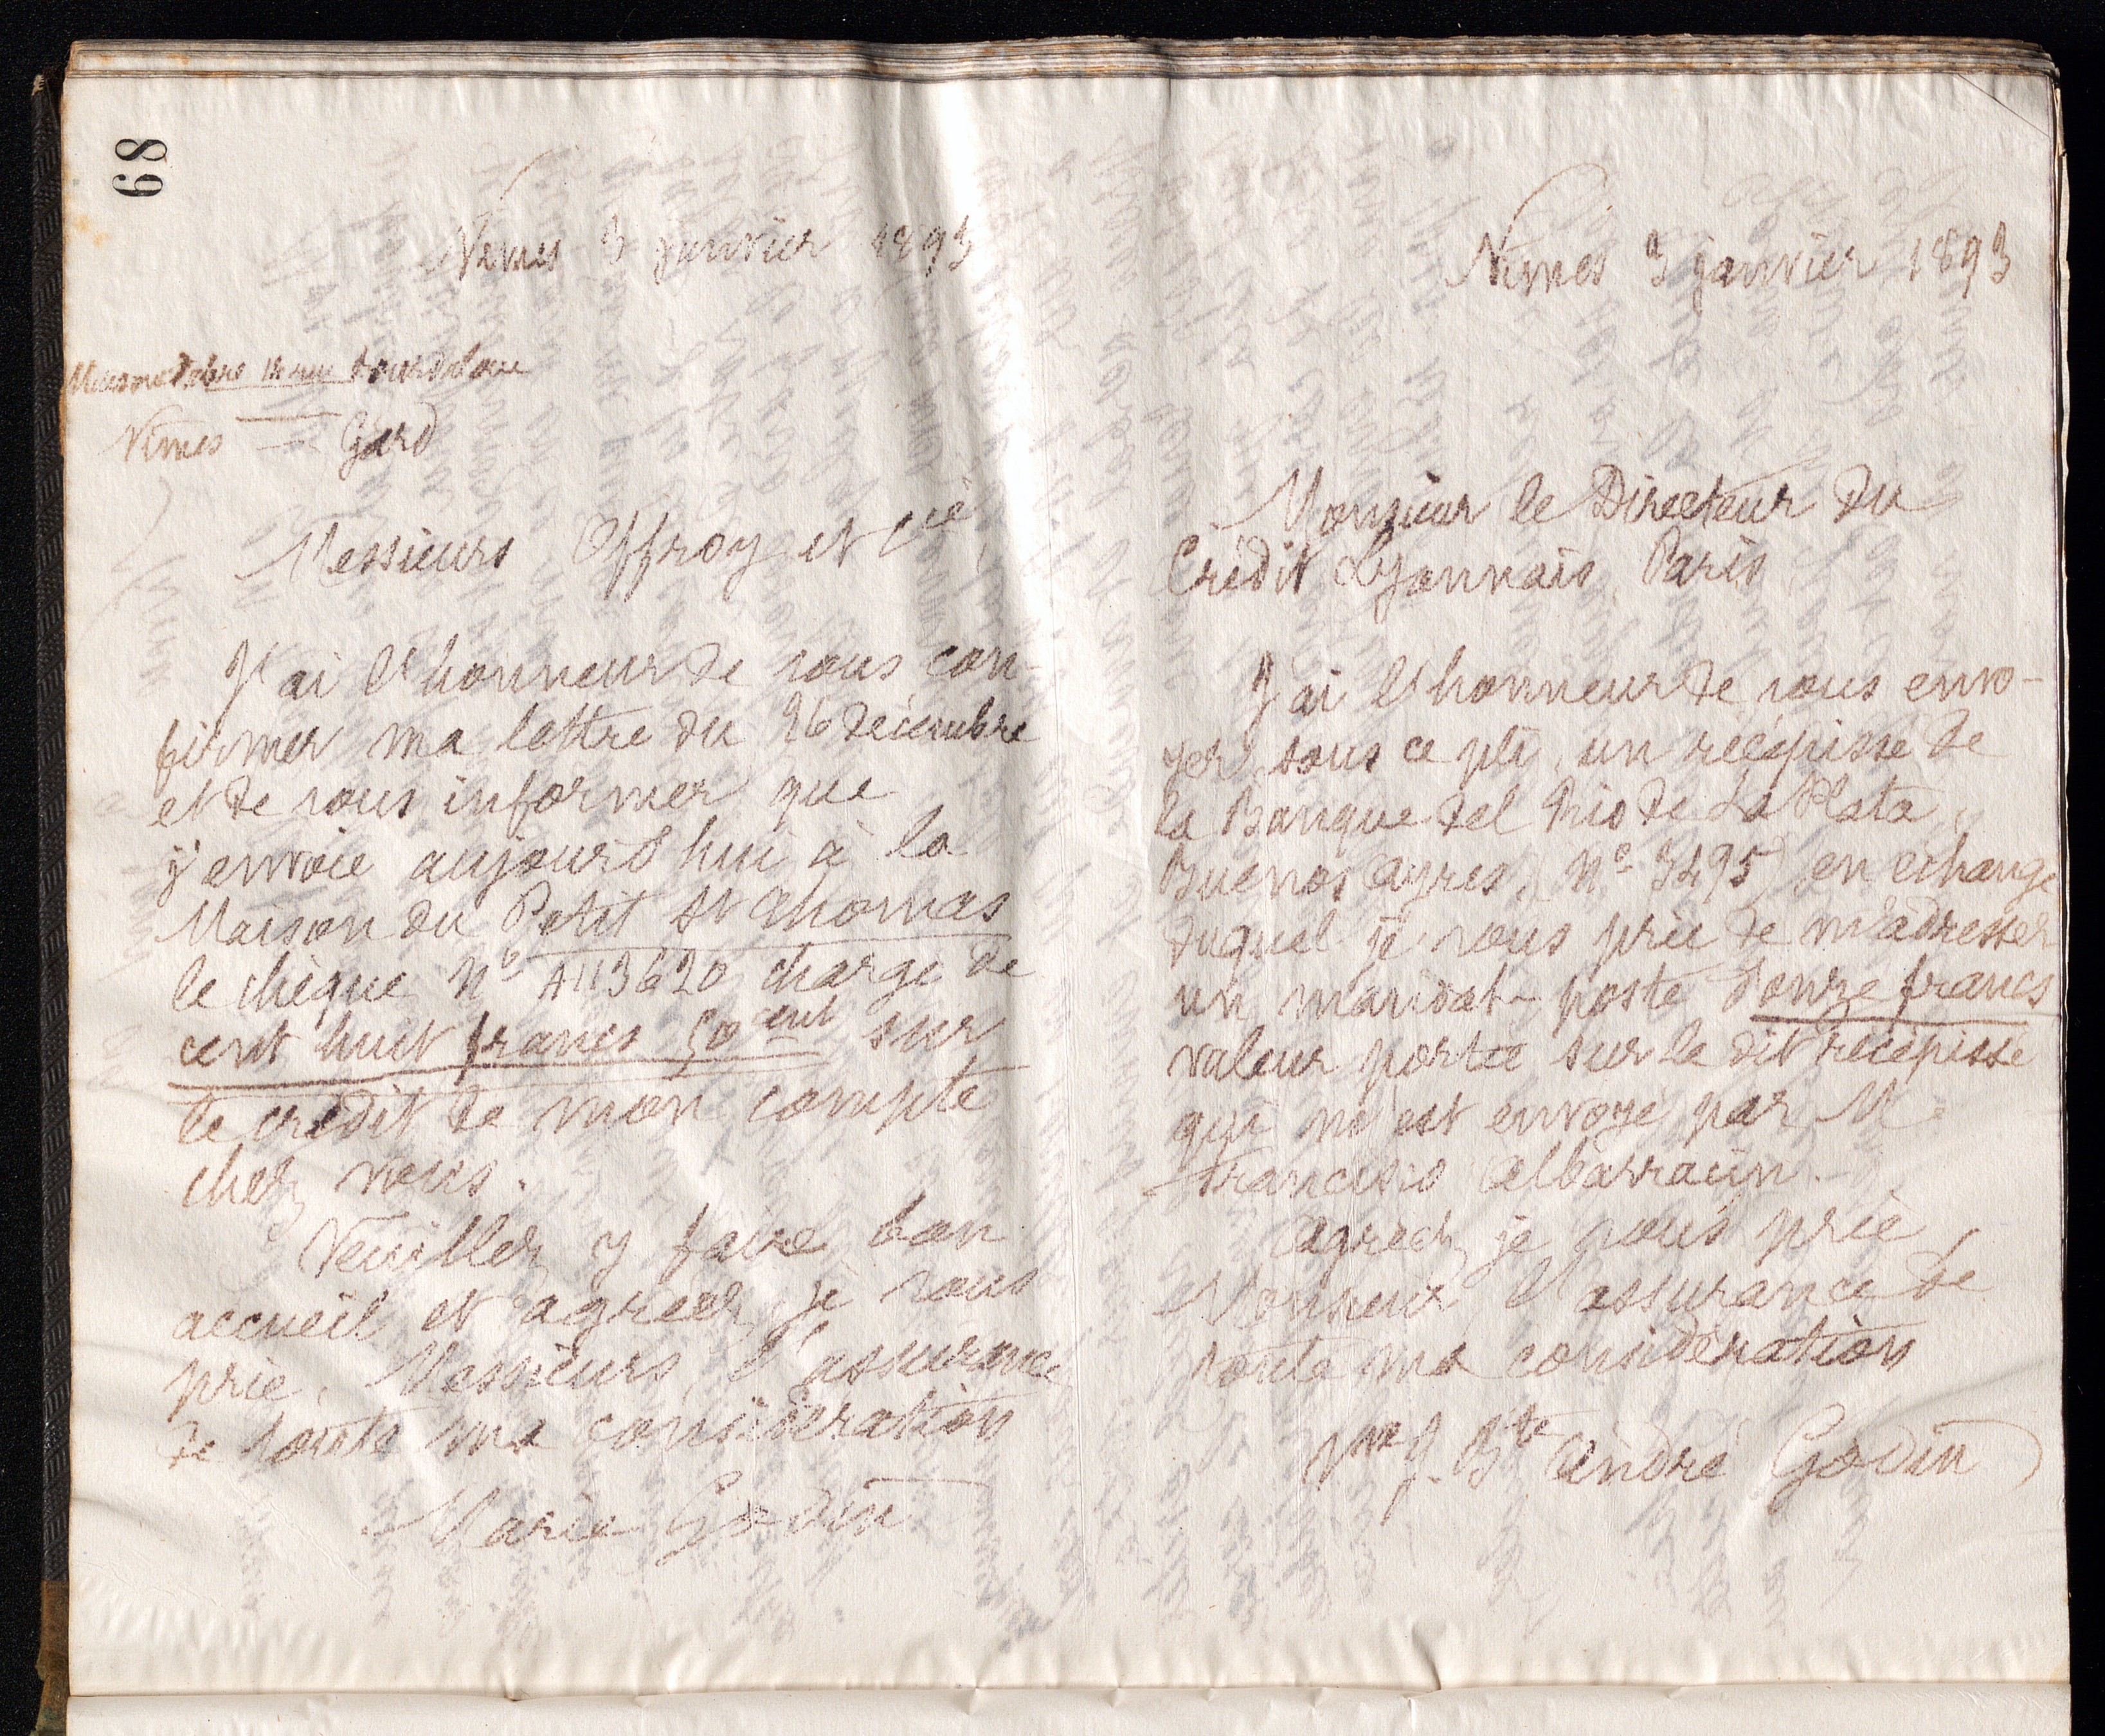 68
Nîmes 3 janvier 1893
14 rue Bourdaloue
Nîmes — Gard
Messieurs Offroy et Cie,
J'ai l'honneur de vous con-
firmer ma lettre du 26 décembre
et de vous informer que
j'envoie aujourd'hui à la
Maison du Petit St Thomas
le chèque No A113620 chargé de
cent huit francs 50 cent sur
le crédit de mon compte
chez vous.
Veuillez y faire bon
accueil et agréer, je vous
prie, Messieurs, l'assurance
de toute ma considération
Marie Godin
Nîmes 3 janvier 1893
Monsieur le Directeur du
Crédit Lyonnais, Paris
J'ai l'honneur de vous envo-
yer, sous ce pli, un récépissé de
la Banque del Rio de La Plata,
Buenos ayres, No 3495 en échange
duquel je vous prie de m'adresser
un mandat-poste d'onze francs
valeur portée sur le dit récépissé
qui m'est envoyé par M.
Francisco Albarracin.
Agréez, je vous prie
Monsieur l'assurance de
toute ma considération
Vve J. Bte André Godin